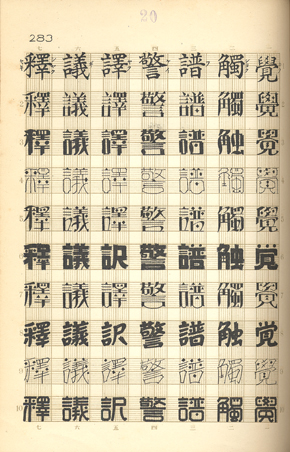 20
283
七 六 五 四 三 二 一
釋 議 譯 警 譜 觸 覺
釋 議 譯 警 譜 觸 覺
釋 議 譯 警 譜 触 覺
釋 議 譯 警 譜 觸 覺
釋 議 譯 警 譜 觸 覺
釋 議 訳 警 譜 触 覚
釋 議 譯 警 譜 觸 覺
釋 議 訳 警 譜 触 覚
釋 議 譯 警 譜 觸 覺
釋 議 訳 警 譜 觸 覺
七 六 五 四 三 二 一